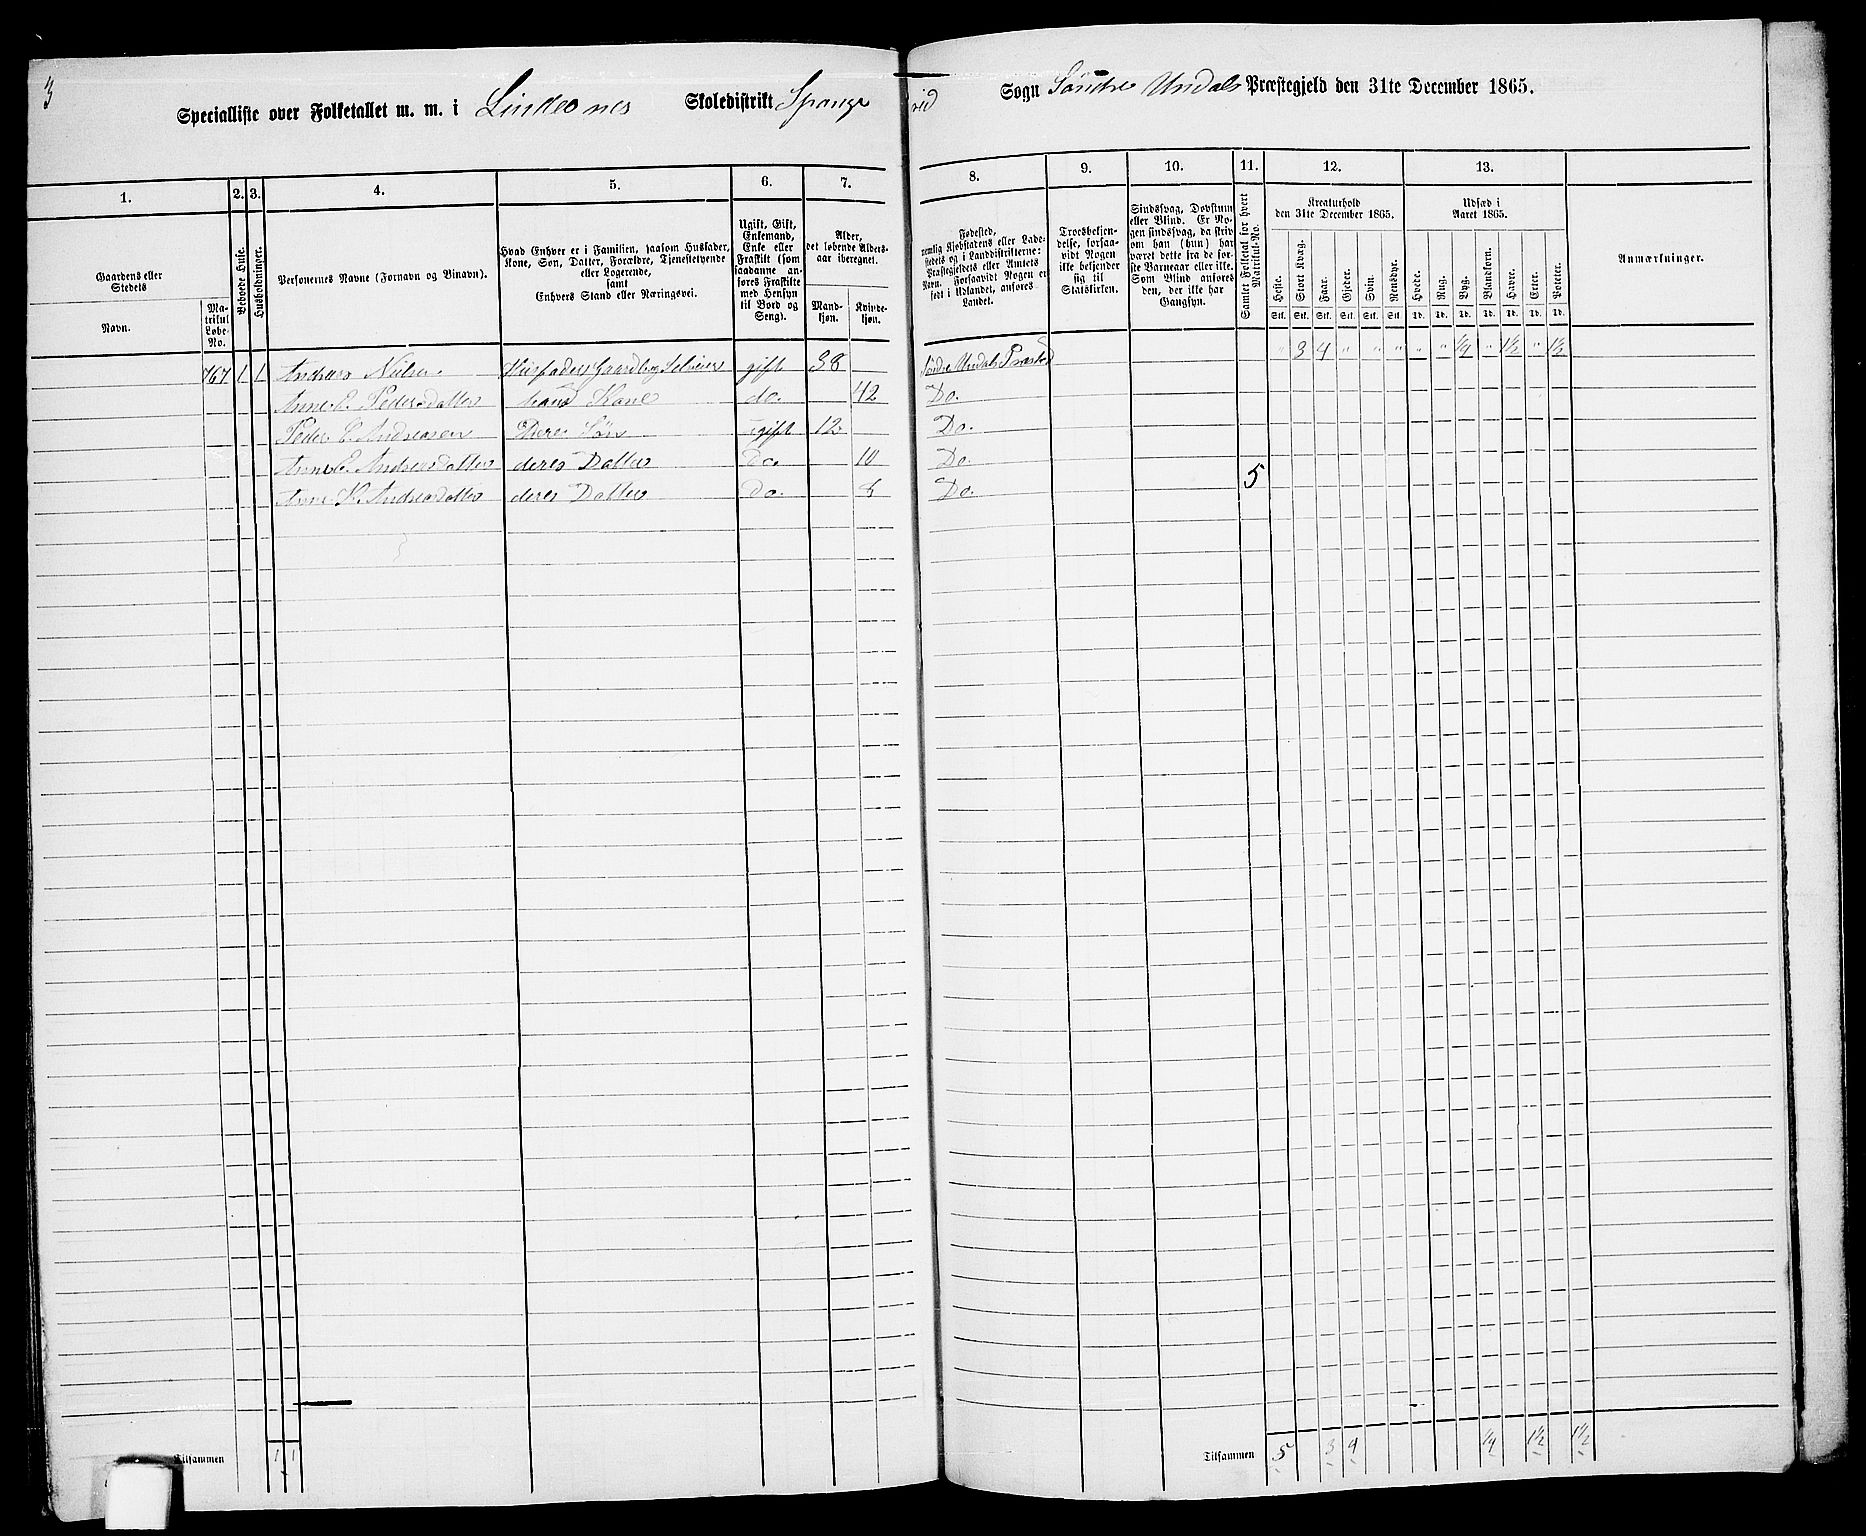 3
Specialliste over Folketallet m. m. i Lindesnes Skoledistrikt Spange
1. 2. 3. 4. 5. 6. 7.
Gaardens eller Stedets
Navn.
Matrikul Løbe-No.
Beboede Huse.
Husholdninger.
Personernes Navne (Fornavn og Binavn).
Hvad Enhver er i Familien, saasom Husfader,
Kone, Søn, Datter, Forældre, Tjenestetyende
eller Logerende,
samt
Enhvers Stand eller Næringsvei.
Ugift, Gift,
Enkemand,
Enke eller
Fraskilt (som
saadanne an-
føres Fraskilte
med Hensyn
til Bord og
Seng).
Alder,
det løbende Alders-
aar iberegnet.
Mand-
kjøn.
Kvinde-
kjøn.
767 1 1 Andreas Nielsen Husfader Gaardbr Selveier gift 38
Anne C. Pedersdatter hans Kone do. 42
Peder C. Andreasen Deres Søn ugift 12
Anne C. Andreasdatter deres Datter Do. 10
Anne K. Andreasdatter deres Datter Do. 8
Tilsammen 1 1
vid Sogn Søndre Undals Præstegjeld den 31te December 1865.
8. 9. 10. 11. 12. 13.
Fødested,
nemlig Kjøbstadens eller Lade-
stedets og i Landdistrikterne:
Præstegjeldets eller Amtets
Navn. Forsaavidt Nogen er
født i Udlandet, anføres
Landet.
Troesbekjen-
delse, forsaa-
vidt Nogen
ikke bekjender
sig til
Statskirken.
Sindssvag, Døvstum
eller Blind. Er No-
gen sindssvag, da skriv
om han (hun) har
været dette fra de før-
ste Barneaar eller ikke.
Som Blind anføres
den, der ikke har
Gangsyn.
Samlet Folketal for hvert Matrikul-No.
Kreaturhold
den 31te December 1865.
Heste. Stort Kvæg. Faar. Gjeder. Svin. Rensdyr.
Stk. Stk. Stk. Stk. Stk. Stk.
Udsæd i
Aaret 1865.
Hvede. Rug. Byg. Blandkorn. Havre. Erter. Poteter.
Td. Td. Td. Td. Td. Td. Td.
Anmærkninger.
" 3 4 " " " " " 1/4 " 1 1/2 " 1 1/2
Søndre Undals Præsteg
Do.
Do.
Do.
Do. 5
Tilsammen 5 3 4 1/4 1 1/2 1 1/2